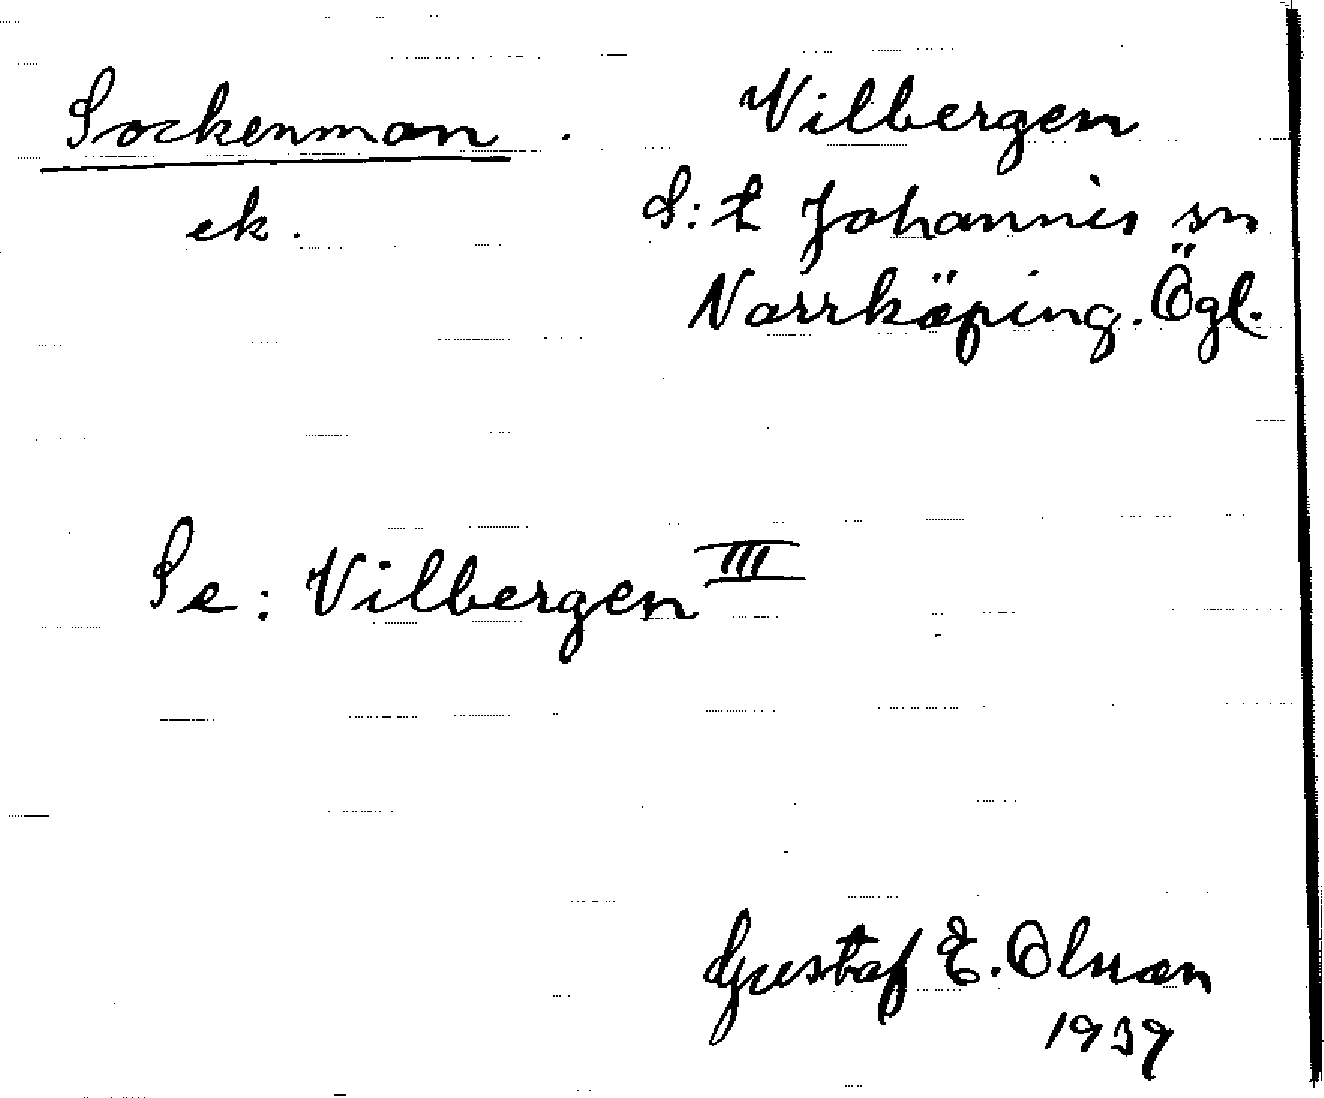 Sockenman.
ek.
Vilbergen
S:t Johannis sn
Norrköping. Ögl.
Se: Vilbergen III
Gustaf E. Olsson
1939